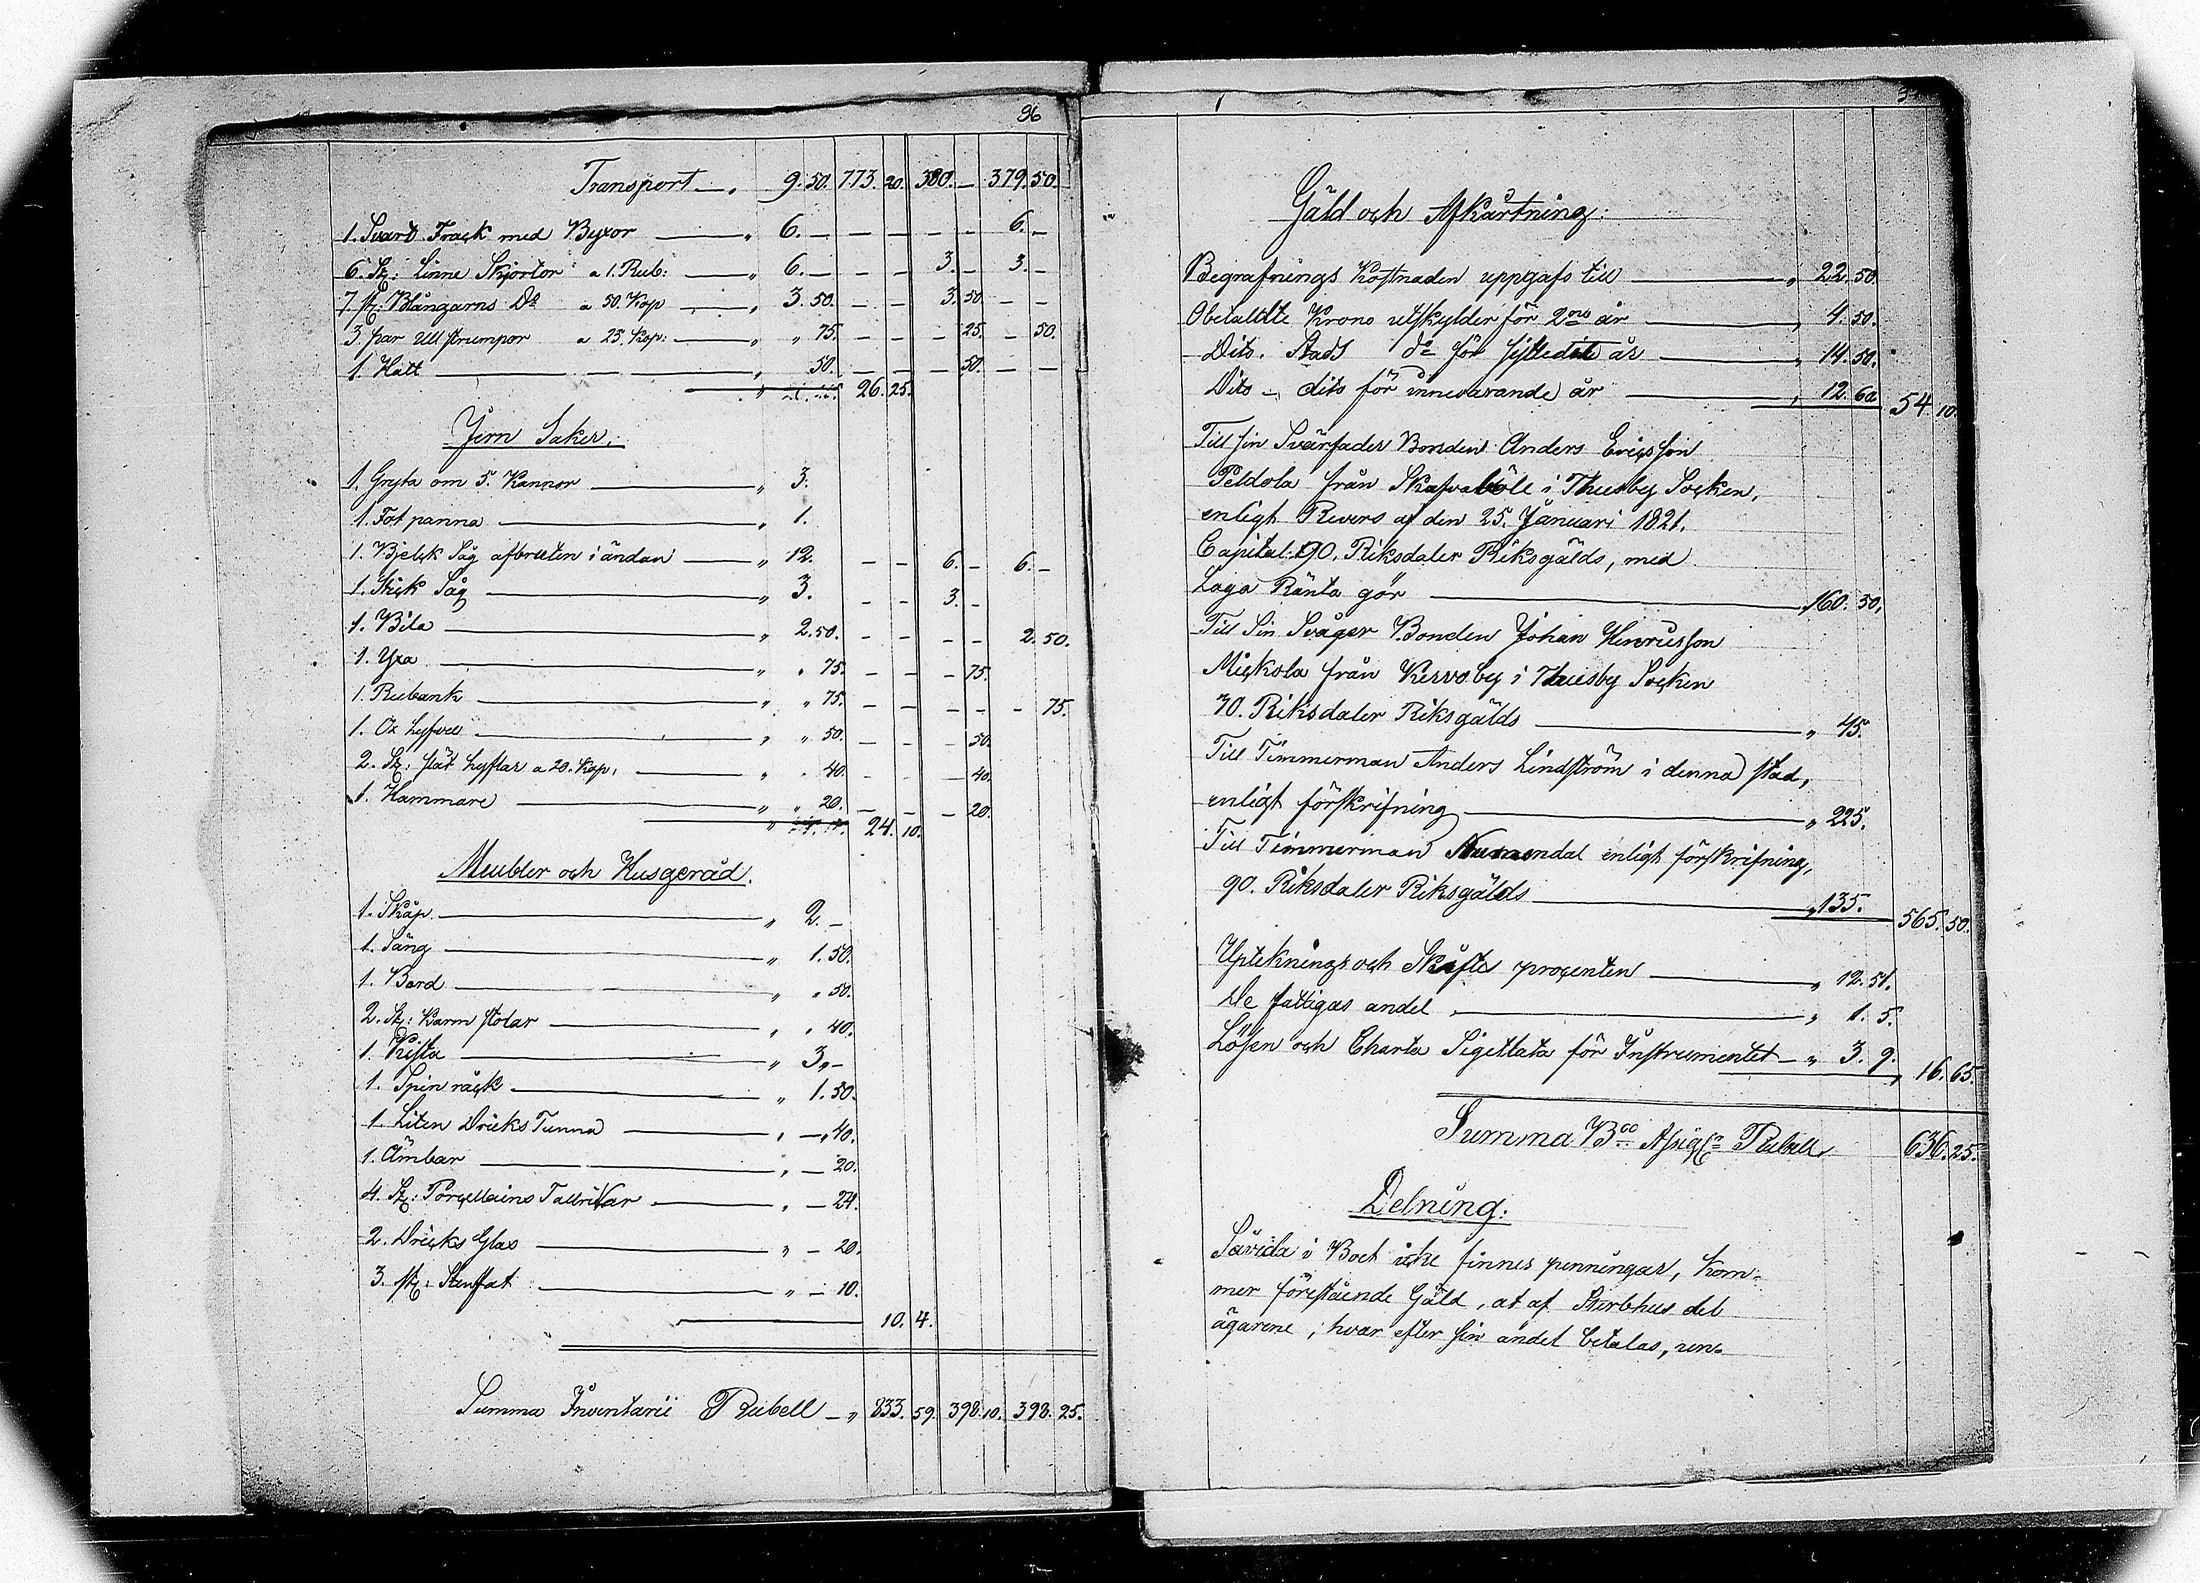 96
Transport — „ 9. 50. 773. 20. 380. — 379. 50.
1. Svart Frack med Byxor — „ 6. — — — — — 6. —
6. St: Linne Skjortor a 1. Rub: — „ 6. — — — 3. — 3. —
7. st: Blångarns Do a 50. Kop — „ 3. 50. — — 3. 50. — —
3. par Ull strumpor a 25. Kop: — „ „ 75. — — — 25. — 50.
1. Hatt — „ 50. — — — 50. — —
26. 25.
Jern Saker.
1. Gryta om 5. Kannor — „ 3.
1. Fot panna — „ 1.
1. Bjelck Såg afbruten i ändan — „ 12. — — 6. — 6. —
1. Stick Såg — „ 3. — — 3. —
1. Bila — „ 2. 50. — — — — 2. 50.
1. Yxa — „ „ 75. — — — 75.
1. Rubank — „ „ 75. — — — — — 75.
1. Ox hyfvel — „ „ 50. — — — 50.
2. St: slät hyflar a 20. Kop: — „ „ 40. — — — 40.
1. Hammare — „ „ 20. — — — 20.
„ 24. 10.
Meubler och Husgeråd.
1. Skåp. — „ 2. —
1. Säng — „ 1. 50.
1. Bord — „ „ 50.
2. St: Karm stolar — „ „ 40.
1. Kista — „ 3 „ —
1. Spin råck — „ 1. 50.
1. Liten Dricks Tunna — „ — „ 40.
1. Ämbar — „ — 20.
4. St: Porcellains Tallrikar — „ — 24.
2. Dricks Glas — „ — 20.
3. st: Stenfat — „ — 10.
10. 4.
Summa Inventarii Rubell — „ 833. 59. 398. 10. 398. 25.
Gäld och Afkårtning:
Begrafnings Kostnaden uppgafs till — „ 22. 50.
Obetallte Krono utskylder för 2ne år — „ 4. 50.
Dito. Stads do för sistledit år — „ 14. 50.
Dito — dito för innevarande år — „ 12. 60 54. 10.
Till sin Svärfader Bonden Anders Ericsson
Peldola från Skafvaböle i Thusby Socken,
enligt Revers af den 25. Januari 1821.
Capital: 90. Riksdaler Riksgälds, med
Laga Ränta gör — 160. 50.
Till Sin Svåger Bonden Johan Henricsson
Mickola från Kervo by i Thusby Socken
30. Riksdaler Riksgälds — „ 45.
Till Timmerman Anders Lindström i denna stad,
enligt förskrifning — „ 225.
Till Timmerman enligt förskrifning,
90. Riksdaler Riksgälds — „ 135. 565. 50.
Upteknings och Skifts procenten — „ 12. 51.
De fattigas andel — „ 1. 5.
Lösen och Charta Sigillata för Instrumentet — „ 3. 9. „ 16. 65.
Summa Bco Rubell 636. 25.
Delning:
Såvida i Boet icke finnes penningar, kom-
mer förestående Gäld, at af Sterbhus del
ägarene, hvar efter sin andel betalas, un-